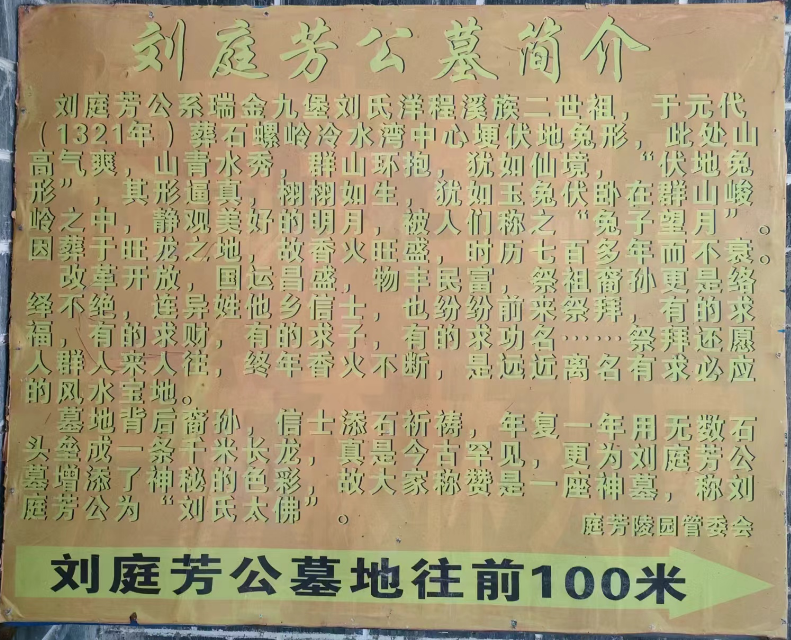 刘庭芳公墓简介
刘庭芳公系瑞金九堡刘氏洋程溪族二世祖，于元代
（1321年）葬石螺岭冷水湾中心埂伏地兔形，此处山
高气爽，山青水秀，群山环抱，犹如仙境，“伏地兔
形”，其形逼真，栩栩如生，犹如玉兔伏卧在群山峻
岭之中，静观美好的明月，被人们称之“兔子望月”。
因葬于旺龙之地，故香火旺盛，时历七百多年而不衰。
改革开放，国运昌盛，物丰民富，祭祖裔孙更是络
绎不绝，连异姓他乡信士，也纷纷前来祭拜，有的求
福，有的求财，有的求子，有的求功名……祭拜还愿
人群人来人往，终年香火不断，是远近离名有求必应
的风水宝地。
墓地背后裔孙，信士添石祈祷，年复一年用无数石
头垒成一条千米长龙，真是今古罕见，更为刘庭芳公
墓增添了神秘的色彩，故大家称赞是一座神墓，称刘
庭芳公为“刘氏太佛”。
庭芳陵园管委会
刘庭芳公墓地往前100米